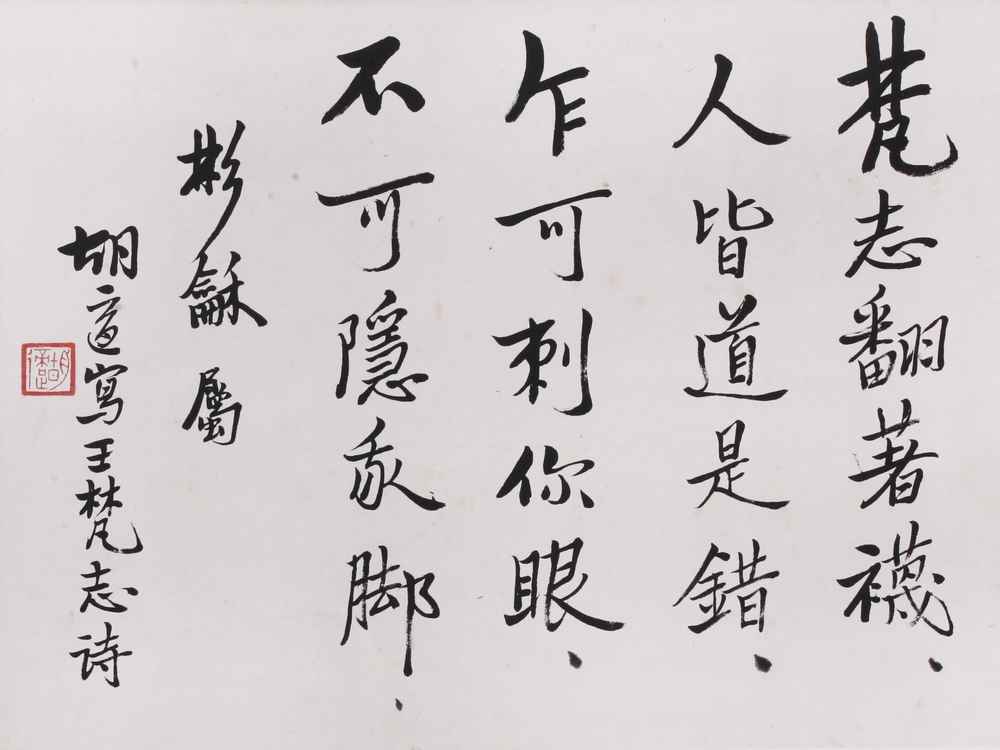 梵志翻著襪、
人皆道是錯、
乍可刺你眼、
不可隱我脚、
彬龢屬
胡適寫王梵志詩
胡適